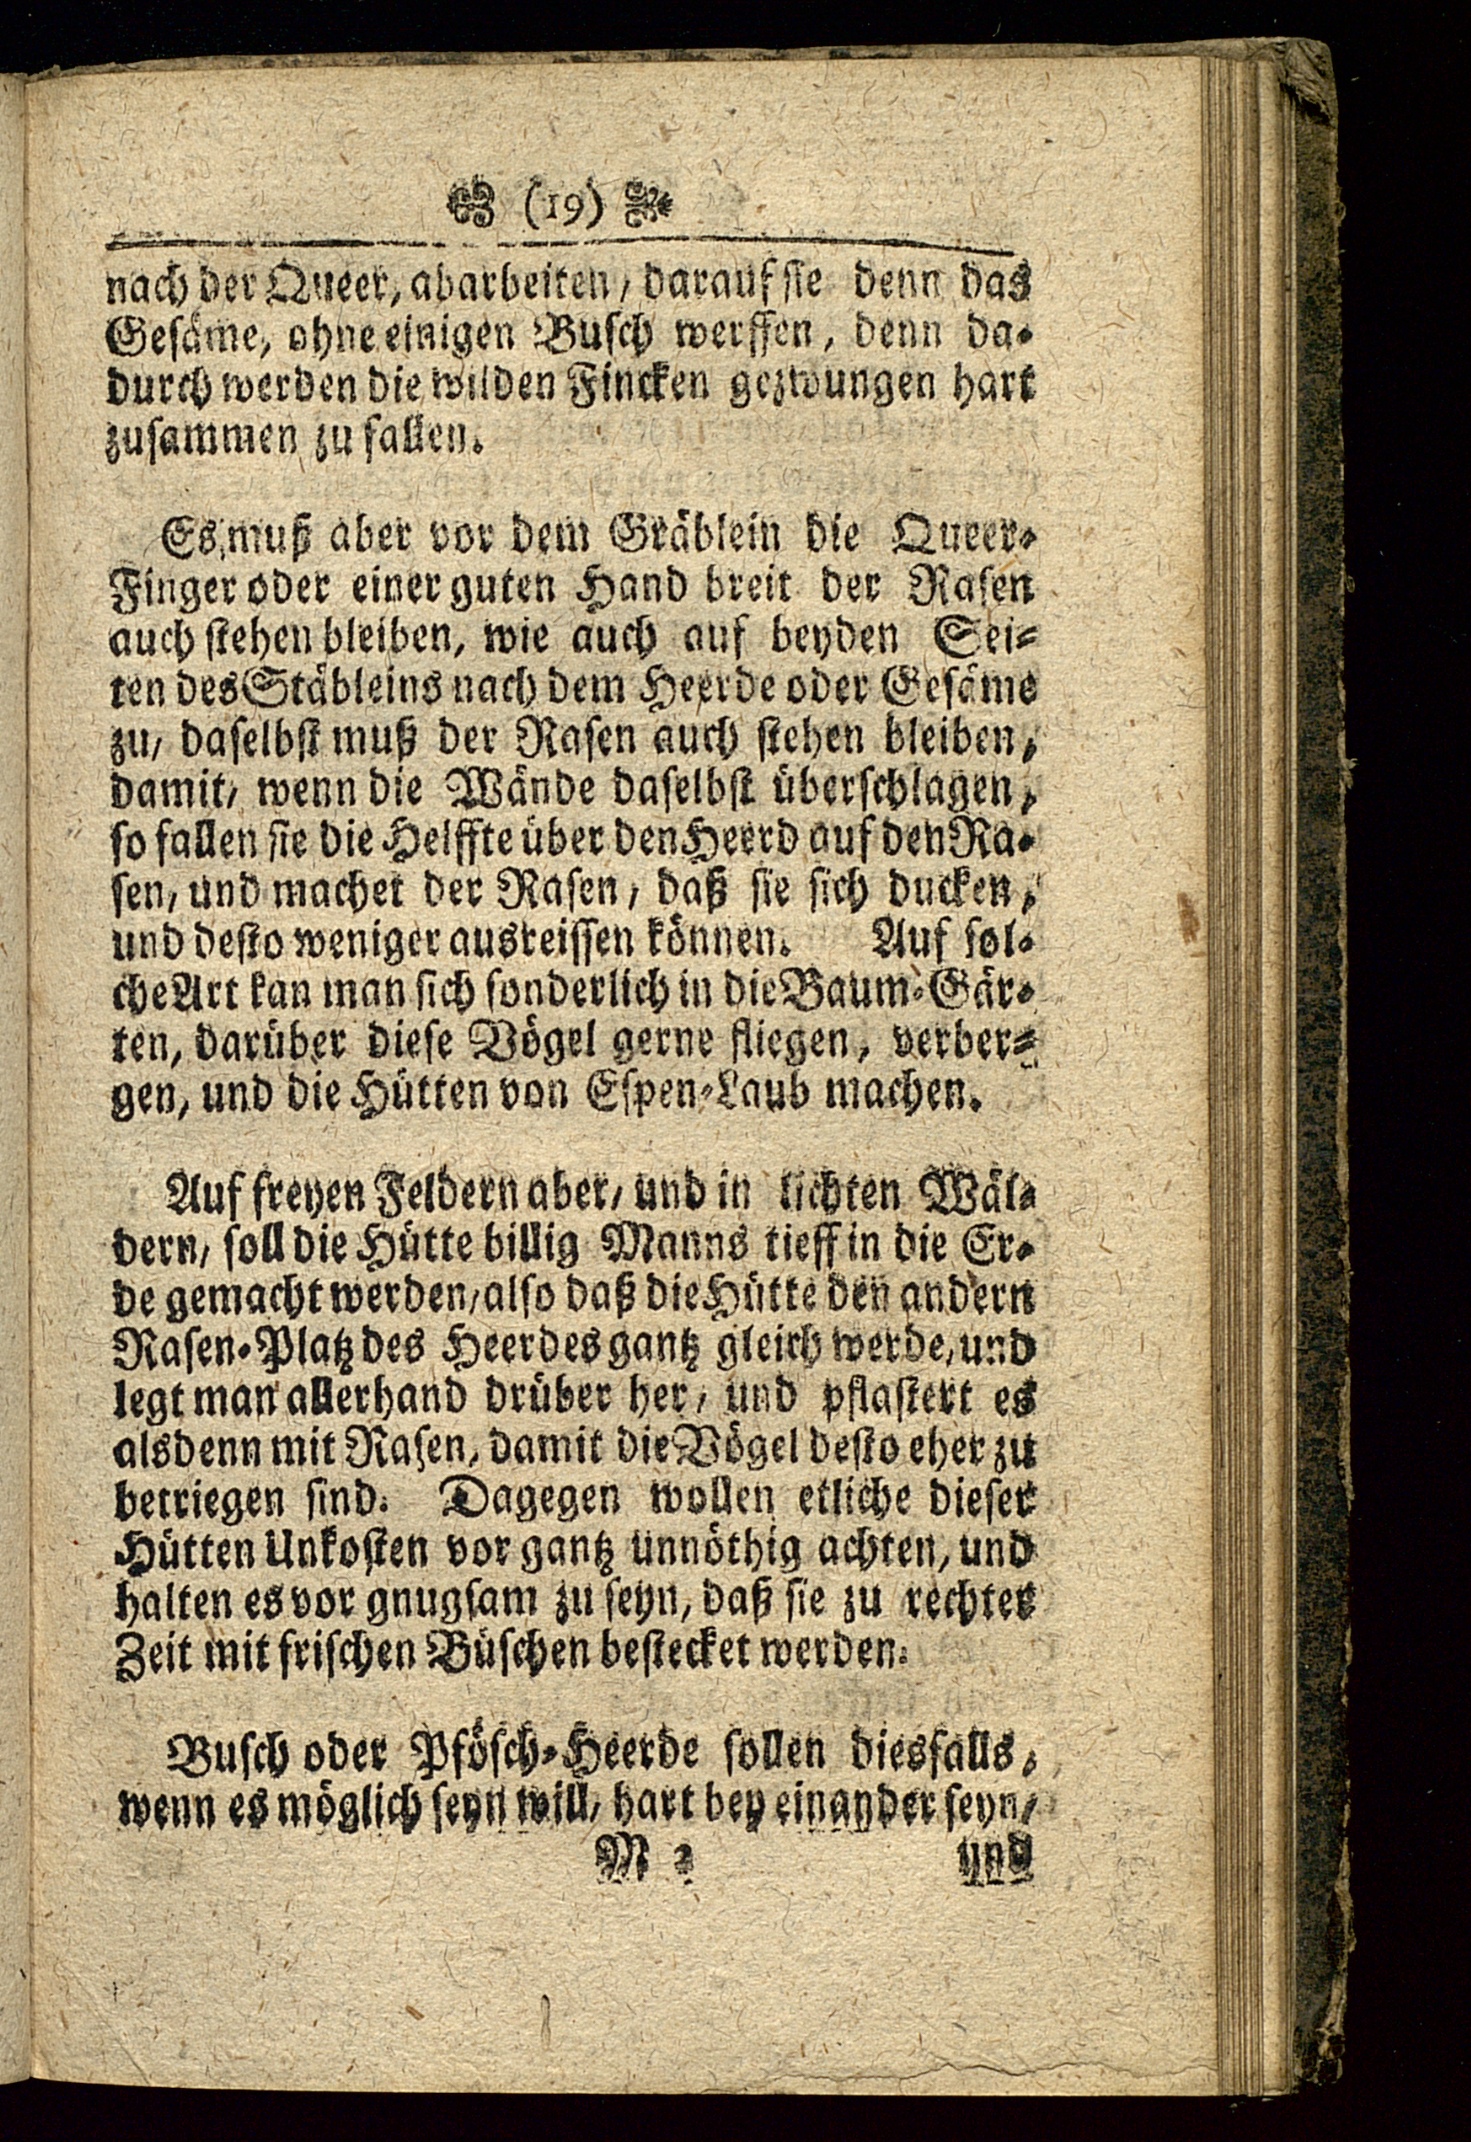 (19)
nach der Queer, abarbeiten, darauf sie denn das
Gesäme, ohne einigen Busch werffen, denn da-
durch werden die wilden Fincken gezwungen hart
zusammen zu fallen.
Es muß aber vor dem Gräblein die Queer-
Finger oder einer guten Hand breit der Rasen
auch stehen bleiben, wie auch auf beyden Sei-
ten des Stäbleins nach dem Heerde oder Gesäme
zu, daselbst muß der Rasen auch stehen bleiben,
damit, wenn die Wände daselbst überschlagen,
so fallen sie die Helffte über den Heerd auf den Ra-
sen, und machet der Rasen, daß sie sich ducken,
und desto weniger ausreissen können. Auf sol-
che Art kan man sich sonderlich in die Baum-Gär-
ten, darüber diese Vögel gerne fliegen, verber-
gen, und die Hütten von Espen-Laub machen.
Auf freyen Feldern aber, und in lichten Wäl-
dern, soll die Hütte billig Manns tieff in die Er-
de gemacht werden, also daß die Hütte den andern
Rasen-Platz des Heerdes gantz gleich werde, und
legt man allerhand drüber her, und pflastert es
alsdenn mit Rasen, damit die Vögel desto eher zu
betriegen sind. Dagegen wollen etliche dieser
Hütten Unkosten vor gantz unnöthig achten, und
halten es vor gnugsam zu seyn, daß sie zu rechter
Zeit mit frischen Büschen bestecket werden.
Busch oder Pfösch-Heerde sollen diesfalls,
wenn es möglich seyn will, hart bey einander seyn,
M 2 und